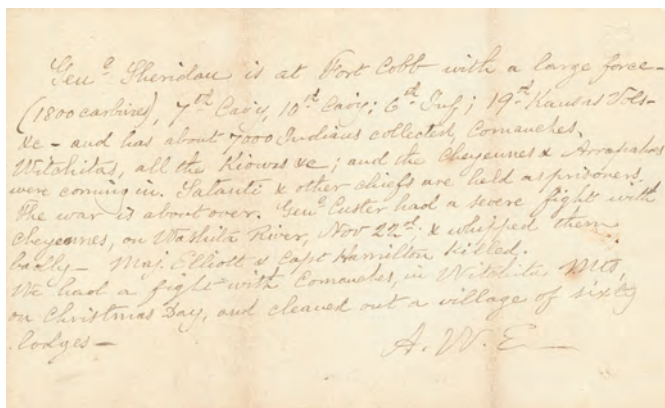 Genl Sheridan is at Fort Cobb with a large force -
(1800 carbines), 7th Cav'y, 10th Cav'y; 6th Inf; 19th Kansas Vols -
&c - and has about 7000 Indians collected, Comanches,
Witchitas, all the Kiowas &c; and the Cheyennes & Arrapahoes
were coming in. Satanti & other chiefs are held as prisoners.
The war is about over. Genl Custer had a severe fight with
Cheyennes, on Washita River, Nov 22nd. & whipped them
badly - Maj. Elliott & Capt Hamilton killed.
We had a fight with Comanches, in Witchita Mts,
on Christmas Day, and cleaned out a village of sixty
lodges -
A. W. E -